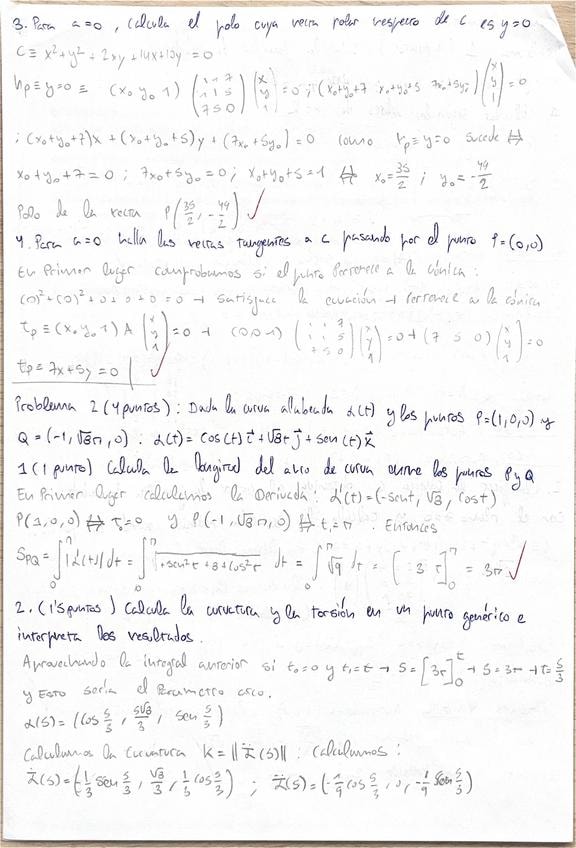 3. Para a=0, calcula el polo cuya recta polar respecto de C es y=0
C ≡ x²+y²+2xy+14x+10y=0
hp ≡ y=0 ≡ (x₀ y₀ 1) (1 1 7 / 1 1 5 / 7 5 0) (x / y / 1) = 0 ; (x₀+y₀+7 x₀+y₀+5 7x₀+5y₀) (x / y / 1) = 0
; (x₀+y₀+7)x + (x₀+y₀+5)y + (7x₀+5y₀)=0 como rp≡y=0 sucede ⇔
x₀+y₀+7=0 ; 7x₀+5y₀=0 ; x₀+y₀+5=1 ⇔ x₀=35/2 ; y₀=-49/2
Polo de la recta P(35/2, -49/2) ✓
4. Para a=0 halla las rectas tangentes a C pasando por el punto P=(0,0)
En Primer lugar comprobamos si el punto Pertenece a la cónica:
(0)²+(0)²+0+0+0=0 → satisface la ecuación → Pertenece a la cónica
tp ≡ (x₀ y₀ 1) A (x / y / 1) = 0 → (0 0 1) (1 1 7 / 1 1 5 / 7 5 0) (x / y / 1) = 0 → (7 5 0) (x / y / 1) = 0
tp ≡ 7x+5y=0 ✓
Problema 2 (4 puntos): Dada la curva alabeada α(t) y los puntos P=(1,0,0) y
Q=(-1, √8π, 0) : α(t) = cos(t) i + √8t j + sen(t) k
1 (1 punto) Calcula la longitud del arco de curva entre los puntos P y Q
En Primer lugar calculamos la Derivada: α'(t)=(-sent, √8, cost)
P(1,0,0) ⇔ t₀=0 y P(-1, √8π, 0) ⇔ t₁=π . Entonces
S_PQ = ∫₀^π |α'(t)| dt = ∫₀^π √(+sen²t+8+cos²t) dt = ∫₀^π √9 dt = [3t]₀^π = 3π ✓
2. (1'5 puntos) Calcula la curvatura y la torsión en un punto genérico e
interpreta los resultados.
Aprovechando la integral anterior si t₀=0 y t₁=t → S=[3t]₀^t → S=3t → t=S/3
y Esto sería el Parámetro arco.
α(s) = (cos s/3, s√8/3, sen s/3)
Calculamos la curvatura K=||α̈(s)|| : calculamos:
α̇(s)=(-1/3 sen s/3, √8/3, 1/3 cos s/3) ; α̈(s)=(-1/9 cos s/3, 0, -1/9 sen s/3)